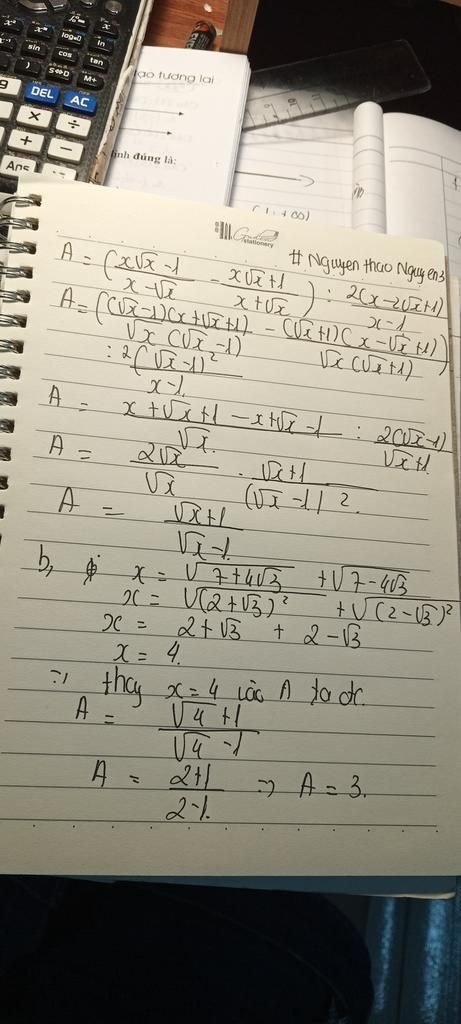 x²
x
log□
ln
sin
cos
tan
)
S⇔D
M+
9
DEL
AC
×
÷
+
−
Ans
ạo tương lai
ịnh đúng là:
stationery
# Nguyen thao Nguyen3
A = (x√x -1 / x-√x - x√x+1 / x+√x) : 2(x-2√x+1) / x-1
A = ((√x-1)(x+√x+1) / √x (√x-1) - (√x+1)(x-√x+1) / √x(√x+1))
: 2(√x-1)² / x-1.
A = x+√x+1 -x+√x -1 / √x. : 2(√x-1) / √x+1.
A = 2√x / √x . √x+1 / (√x -1) 2.
A = √x+1 / √x-1.
b, x = √7+4√3 + √7-4√3
x = √(2+√3)² + √(2-√3)²
x = 2+√3 + 2-√3
x = 4.
=) thay x=4 vào A ta dc.
A = √4 +1 / √4 -1
A = 2+1 / 2-1. => A = 3.